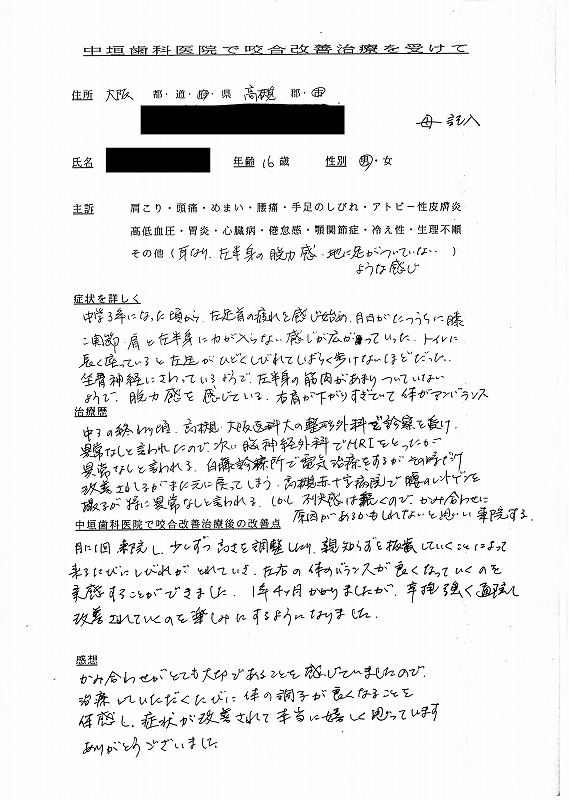 中垣歯科医院で咬合改善治療を受けて
住所 大阪 都・道・府・県 高槻 郡・市
母 記入
氏名 年齢 16 歳 性別 男・女
主訴 肩こり・頭痛・めまい・腰痛・手足のしびれ・アトピー性皮膚炎
高低血圧・胃炎・心臓病・倦怠感・顎関節症・冷え性・生理不順
その他（耳なり、左半身の脱力感・地に足がついていない
ような感じ ）
症状を詳しく
中学3年になった頃から、左足首の疲れを感じ始め、月日がたつうちに膝
関節、肩と左半身に力が入らない感じが広がっていった。トイレに
長く座っていると左足がひどくしびれてしばらく歩けないほどだった。
坐骨神経にさわっているようで、左半身の筋肉があまりついていない
ようで、脱力感を感じている。右肩が下がりすぎていて体がアンバランス
治療歴
中3の終わり頃、高槻・大阪医科大の整形外科で診察を受け
異常なしと言われたので、次に脳神経外科でMRIをとったが
異常なしと言われる。白藤診療所で電気治療をするがその時だけ
改善されるがまた元に戻ってしまう。高槻赤十字病院で腰のレントゲンを
撮るが特に異常なしと言われる。しかし不快感は続くので、かみ合わせに
原因があるかもしれないと思い来院する。
中垣歯科医院で咬合改善治療後の改善点
月に1回来院し、少しずつ高さを調整したり、親知らずを抜歯していくことによって
来るたびにしびれがとれていき、左右の体のバランスが良くなっていくのを
実感することができました。1年4ヶ月かかりましたが、辛抱強く通院し
改善されていくのを楽しみにするようになりました。
感想
かみ合わせがとても大切であることを感じていましたので、
治療していただくたびに体の調子が良くなることを
体感し、症状が改善されて本当に嬉しく思っています
ありがとうございました